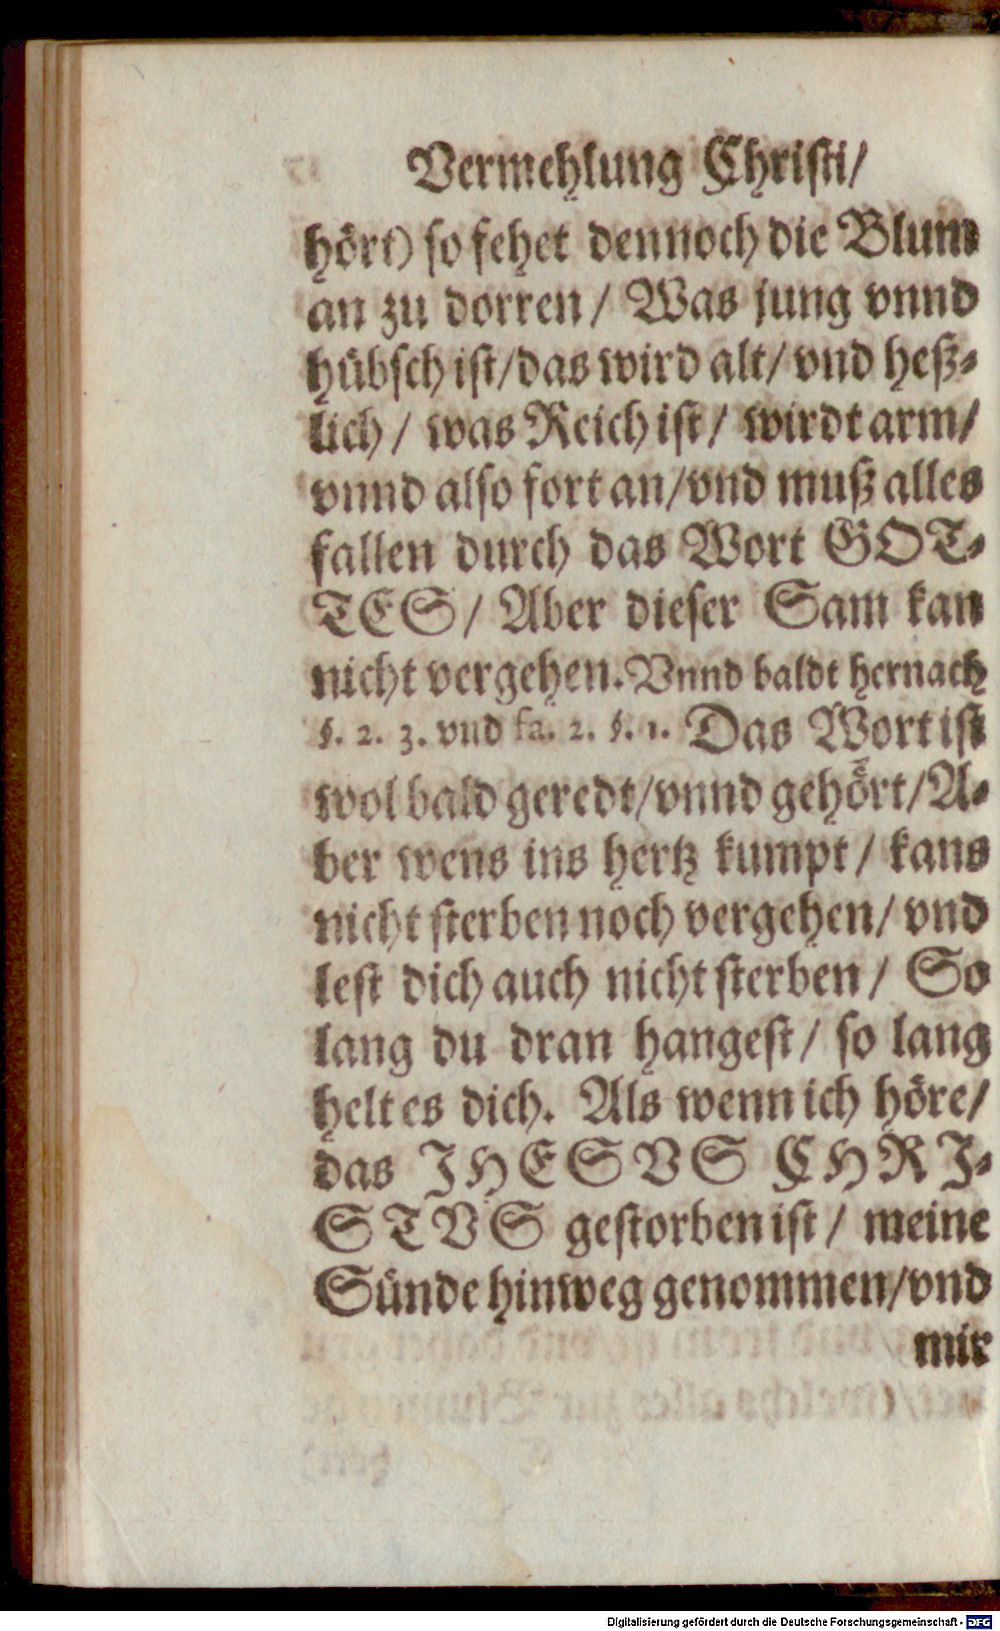 Vermehlung Christi/
hört) so fehet dennoch die Blum
an zu dorren / Was jung vnnd
hübsch ist/das wird alt/ vnd heß-
lich / was Reich ist / wirdt arm/
vnnd also fort an/vnd muß alles
fallen durch das Wort GOT-
TES / Aber dieser Sam kan
nicht vergehen. Vnnd baldt hernach
§. 2. 3. vnd fa. 2. §. 1. Das Wort ist
wol bald geredt/vnnd gehört/A-
ber wens ins hertz kumpt / kans
nicht sterben noch vergehen/ vnd
lest dich auch nicht sterben / So
lang du dran hangest / so lang
helt es dich. Als wenn ich höre/
das JHESVS CHRJ-
STVS gestorben ist / meine
Sünde hinweg genommen/vnd
mir
Digitalisierung gefördert durch die Deutsche Forschungsgemeinschaft - DFG